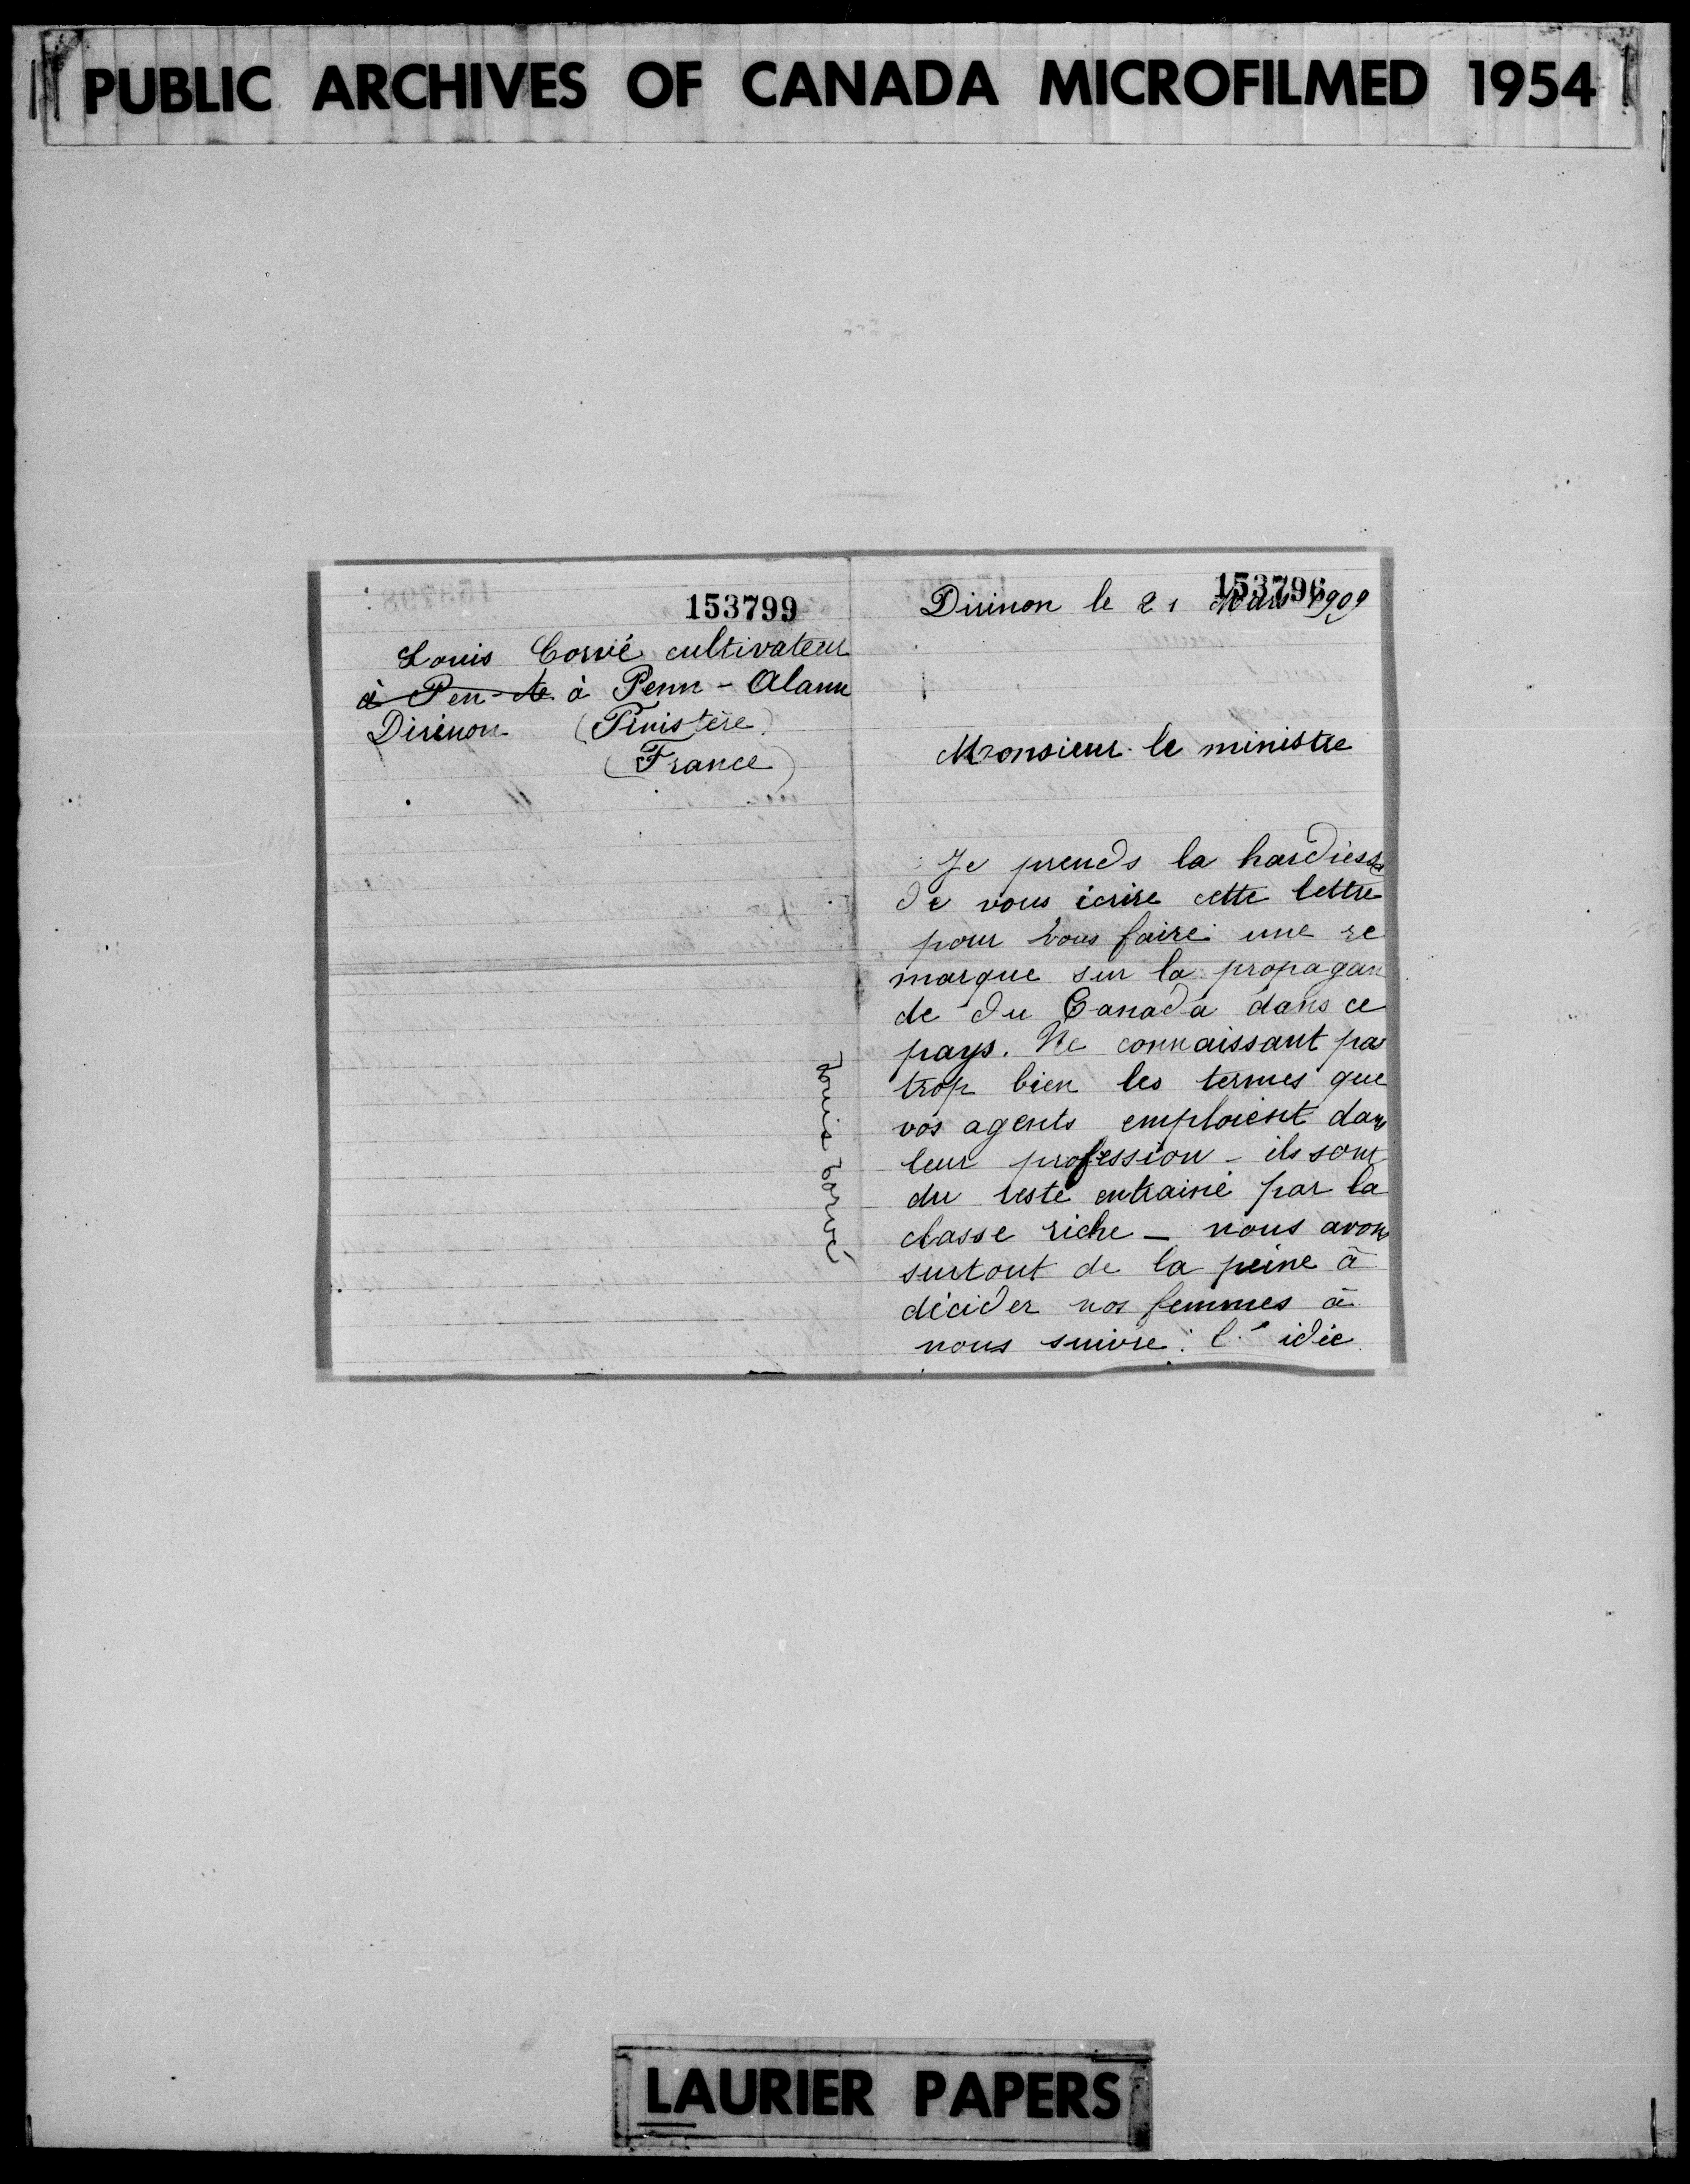 PUBLIC ARCHIVES OF CANADA MICROFILMED 1954
153799
Louis Corvé cultivateur
à Pen-te à Penn-Alann
Dirinon (Finistère)
(France)
Louis Corvé
153796
Dirinon le 21 Mars 1909
Monsieur le ministre
Je prends la hardiesse
de vous écrire cette lettre
pour vous faire une re
marque sur la propagan
de du Canada dans ce
pays. Ne connaissant pas
trop bien les termes que
vos agents emploient dans
leur profession - ils sont
du reste entrainé par la
classe riche - nous avons
surtout de la peine à
décider nos femmes à
nous suivre : l'idée
LAURIER PAPERS